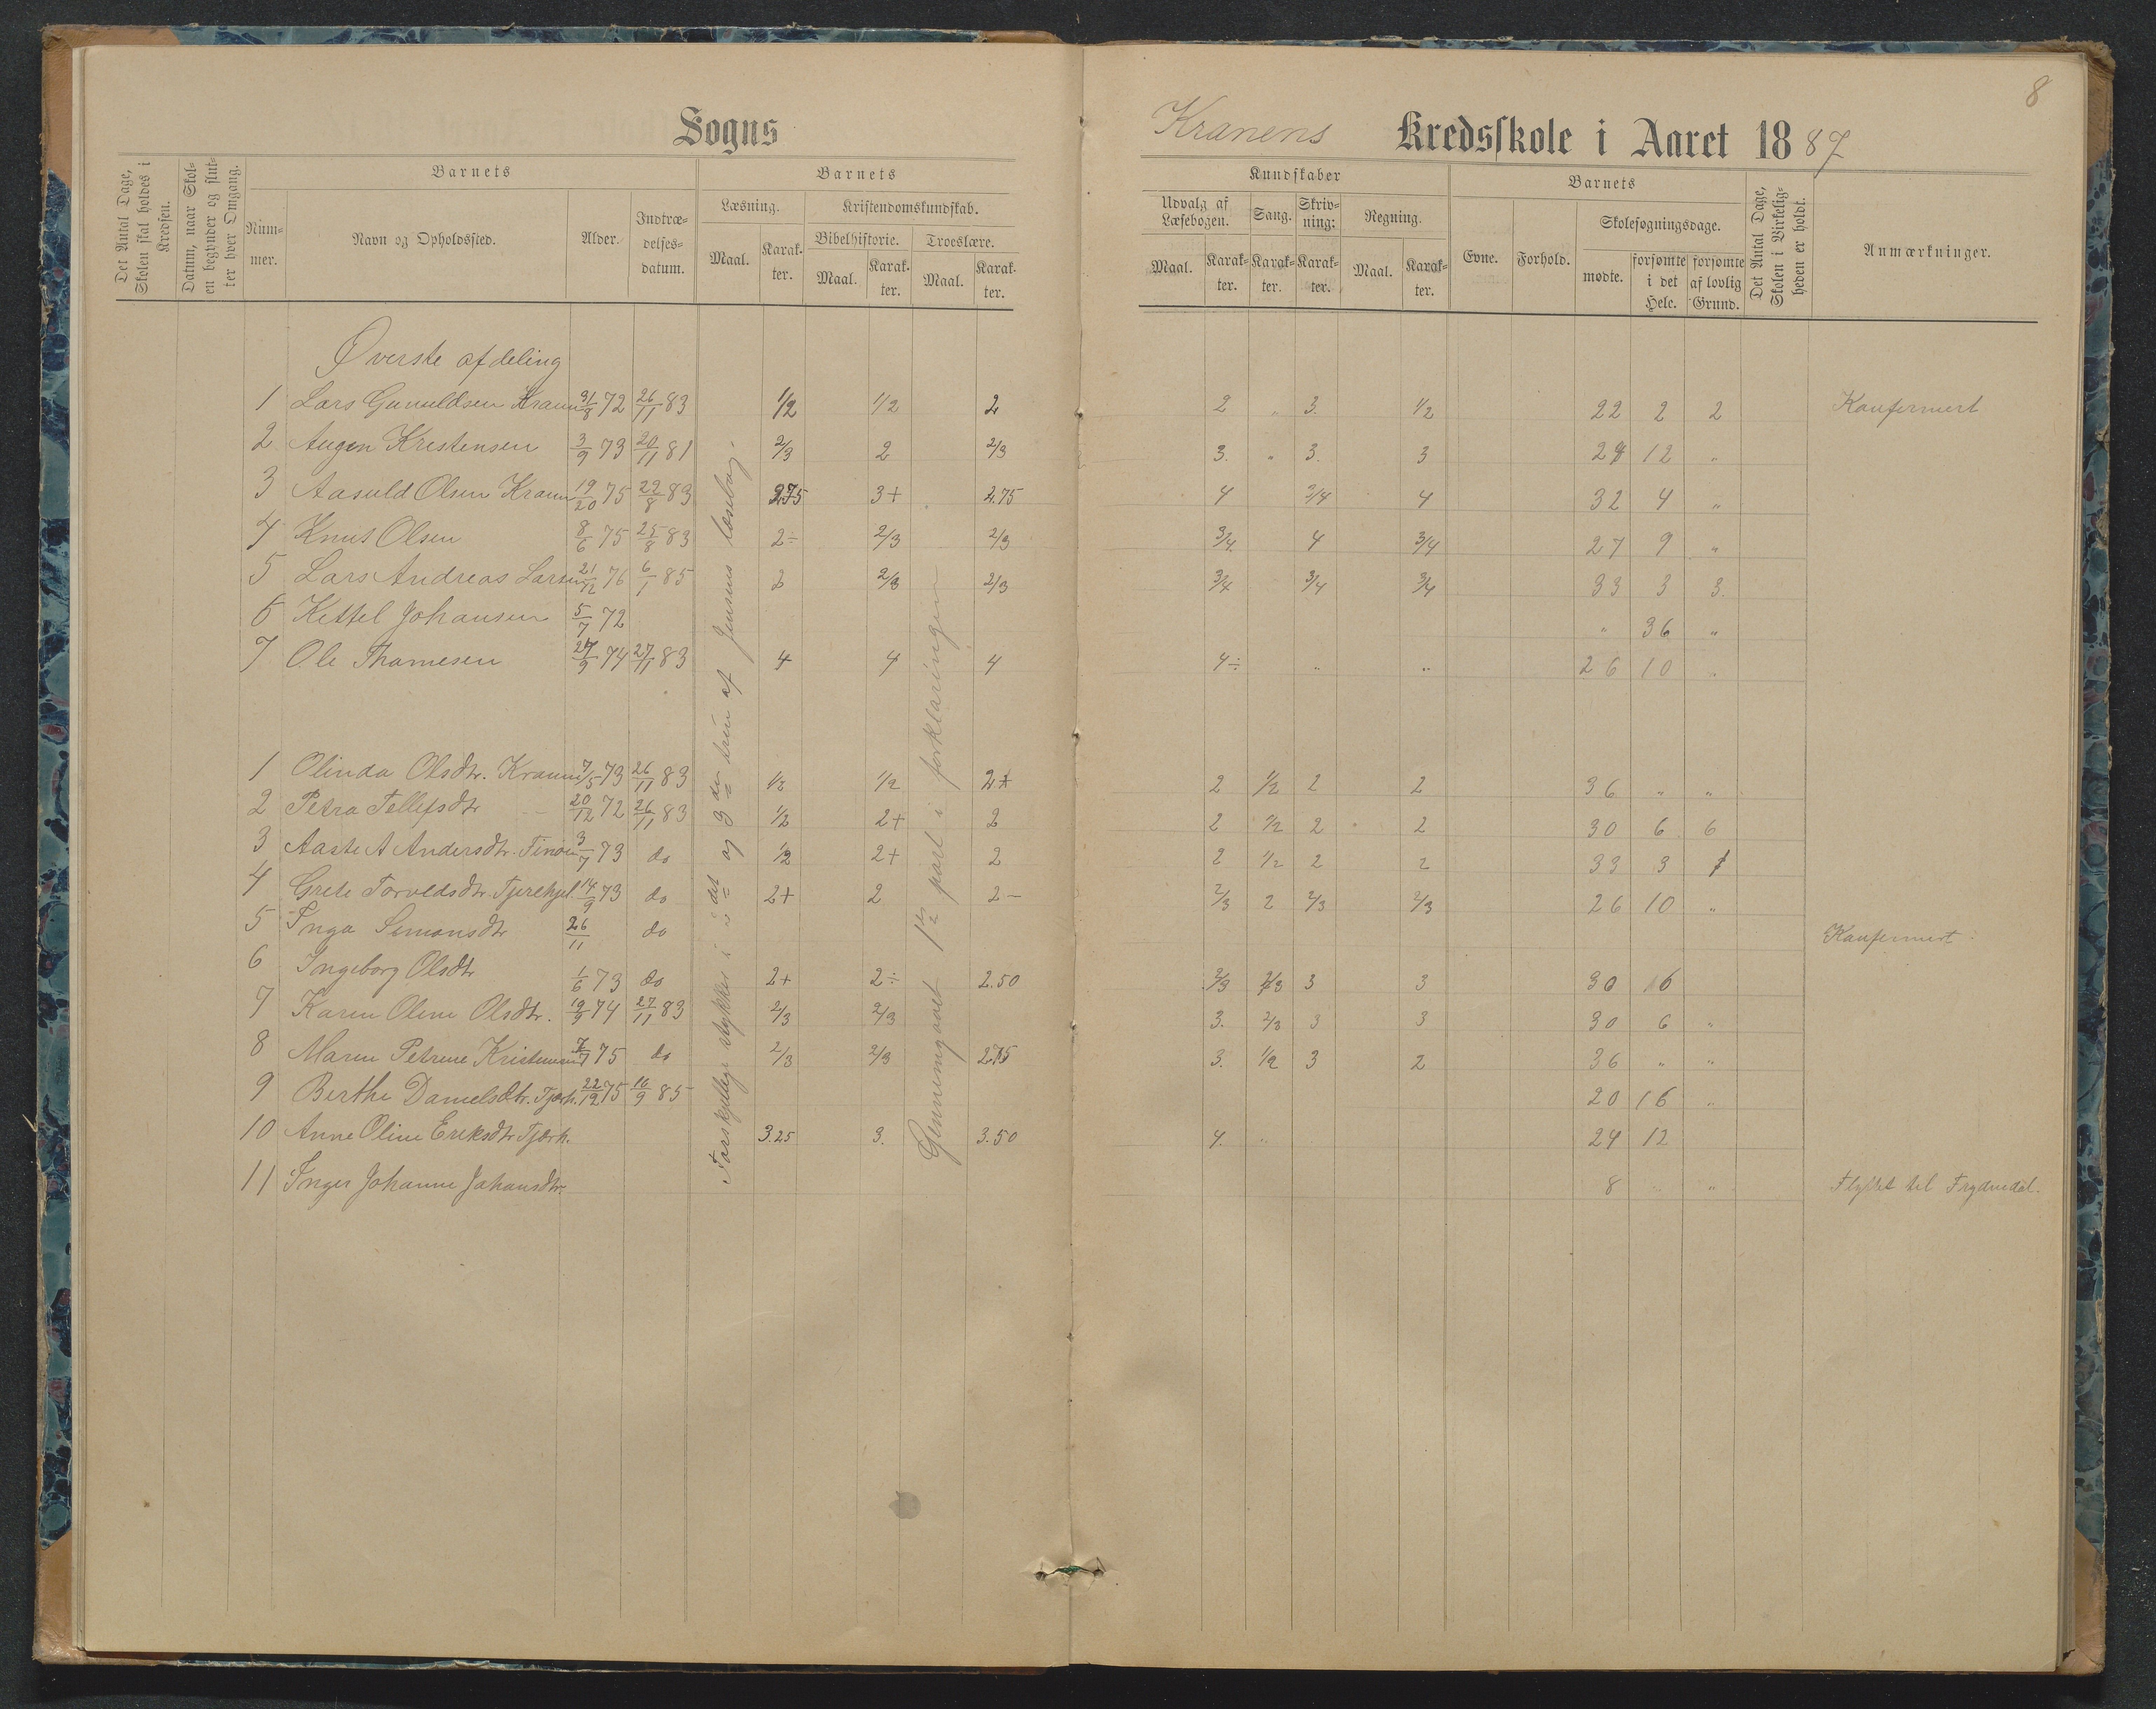 8
Sogns
Kranens Kredsskole i Aaret 1887
Det Antal Dage, Skolen skal holdes i Kredsen.
Datum, naar Skolen begynder og slutter hver Omgang.
Barnets
Nummer.
Navn og Opholdssted.
Alder.
Indtrædelsesdatum.
Barnets
Læsning.
Kristendomskundskab.
Bibelhistorie.
Troeslære.
Maal. Karakter. Maal. Karakter. Maal. Karakter.
Kundskaber
Udvalg af Læsebogen.
Sang.
Skrivning:
Regning.
Maal. Karakter. Karakter. Karakter. Maal. Karakter.
Barnets
Evne. Forhold.
Skolesøgningsdage.
mødte. forsømte i det Hele. forsømte af lovlig Grund.
Det Antal Dage, Skolen i Virkeligheden er holdt.
Anmærkninger.
Øverste afdeling
1 Lars Gunuldsen 31/8 72 26/11 83 1/2 1/2 2 2 " 3. 1/2 22 2 2 Konfermert
2 Augen Krestensen 3/9 73 20/11 81 2/3 2 2/3 3. " 3. 3 28 12 "
3 Aasuld Olsen 19/20 75 22/8 83 2.75 3+ 2.75 4 3/4 4 32 4 "
4 Knut Olsen 8/6 75 25/8 83 2÷ 2/3 2/3 3/4. 4 3/4 27 9 "
5 Lars Andreas Larsen 21/12 76 6/1 85 2 2/3 2/3 3/4 3/4 3/4 33 3 3.
6 Kettel Johansen 5/7 72 " 36 "
7 Ole Thomesen 27/9 74 27/11 83 4 4 4 4÷ " " 26 10 "
1 Olinda Olsdtr. 7/5 73 26/11 83 1/2 1/2 2+ 2 1/2 2 2 36 " "
2 Petra Tellefsdtr 20/12 72 26/11 83 1/2 2+ 2 2 1/2 2 2 30 6 6
3 Aaste A Andersdtr. 3/7 73 do 1/2 2+ 2 2 1/2 2 2 33 3
4 Grete Torvedsdtr. 14/9 73 do 2+ 2 2- 2/3 2 2/3 2/3 26 10 "
5 Inga Simonsdtr 26/11 do Konfermert
6 Ingeborg Olsdtr 1/6 73 do 2+ 2÷ 2.50 2/3 2/3 3 3 30 6
7 Karen Oline Olsdtr. 19/9 74 27/11 83 2/3 2/3 3. 2/3 3 3 30 6 "
8 Maren Petrene 75 do 2/3 2/3 2.75 3. 1/2 3 2 36 " "
9 Berthe Danielsdtr. Tjørh. 22/12 75 16/9 85 20 16 "
10 Anne Oline Eriksdtr Tjørh. 3.25 3. 3.50 4. " 24 12
11 Inger Johanne Johansdtr. 8 " " Flyttet til Frydendal.
Forskjellige stykker i 2det og 3die trin af Jensens læsebog.
Gjennemgaaet 1ste part i forklaringen